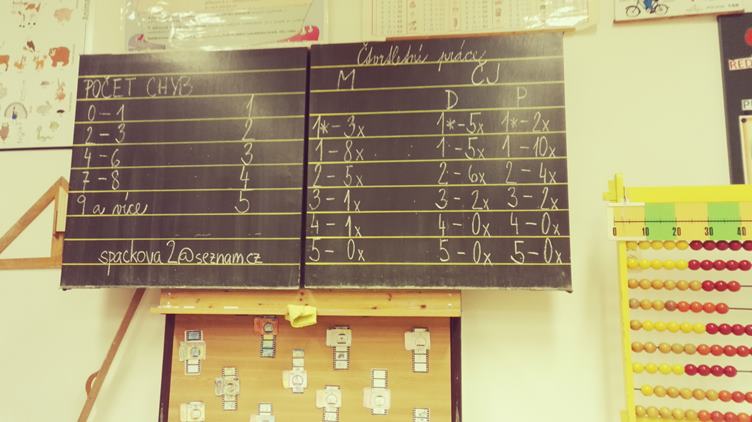 POČET CHYB
0-1 1
2-3 2
4-6 3
7-8 4
9 a více 5
spackova2@seznam.cz
Čtvrtletní práce
M ČJ
D P
1*-3x 1*-5x 1*-2x
1-8x 1-5x 1-10x
2-5x 2-6x 2-4x
3-1x 3-2x 3-2x
4-1x 4-0x 4-0x
5-0x 5-0x 5-0x
0 10 20 30 40